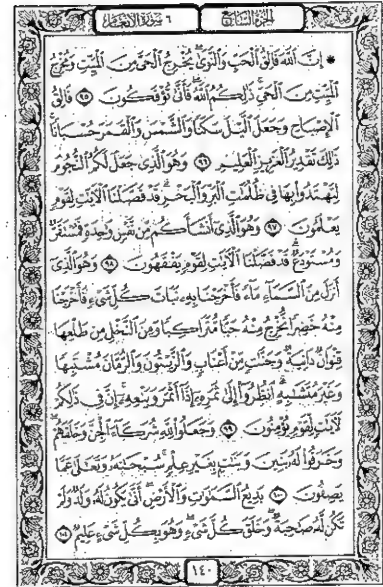 الجزء السابع ٦ سورة الأنعام
* إِنَّ ٱللَّهَ فَالِقُ ٱلْحَبِّ وَٱلنَّوَىٰ يُخْرِجُ ٱلْحَىَّ مِنَ ٱلْمَيِّتِ وَمُخْرِجُ
ٱلْمَيِّتِ مِنَ ٱلْحَىِّ ذَٰلِكُمُ ٱللَّهُ فَأَنَّىٰ تُؤْفَكُونَ ٩٥ فَالِقُ
ٱلْإِصْبَاحِ وَجَعَلَ ٱلَّيْلَ سَكَنًا وَٱلشَّمْسَ وَٱلْقَمَرَ حُسْبَانًا
ذَٰلِكَ تَقْدِيرُ ٱلْعَزِيزِ ٱلْعَلِيمِ ٩٦ وَهُوَ ٱلَّذِى جَعَلَ لَكُمُ ٱلنُّجُومَ
لِتَهْتَدُوا۟ بِهَا فِى ظُلُمَٰتِ ٱلْبَرِّ وَٱلْبَحْرِ قَدْ فَصَّلْنَا ٱلْءَايَٰتِ لِقَوْمٍ
يَعْلَمُونَ ٩٧ وَهُوَ ٱلَّذِىٓ أَنشَأَكُم مِّن نَّفْسٍ وَٰحِدَةٍ فَمُسْتَقَرٌّ
وَمُسْتَوْدَعٌ قَدْ فَصَّلْنَا ٱلْءَايَٰتِ لِقَوْمٍ يَفْقَهُونَ ٩٨ وَهُوَ ٱلَّذِىٓ
أَنزَلَ مِنَ ٱلسَّمَآءِ مَآءً فَأَخْرَجْنَا بِهِۦ نَبَاتَ كُلِّ شَىْءٍ فَأَخْرَجْنَا
مِنْهُ خَضِرًا نُّخْرِجُ مِنْهُ حَبًّا مُّتَرَاكِبًا وَمِنَ ٱلنَّخْلِ مِن طَلْعِهَا
قِنْوَانٌ دَانِيَةٌ وَجَنَّٰتٍ مِّنْ أَعْنَابٍ وَٱلزَّيْتُونَ وَٱلرُّمَّانَ مُشْتَبِهًا
وَغَيْرَ مُتَشَٰبِهٍ ٱنظُرُوٓا۟ إِلَىٰ ثَمَرِهِۦٓ إِذَآ أَثْمَرَ وَيَنْعِهِۦٓ إِنَّ فِى ذَٰلِكُمْ
لَءَايَٰتٍ لِّقَوْمٍ يُؤْمِنُونَ ٩٩ وَجَعَلُوا۟ لِلَّهِ شُرَكَآءَ ٱلْجِنَّ وَخَلَقَهُمْ
وَخَرَقُوا۟ لَهُۥ بَنِينَ وَبَنَٰتٍۭ بِغَيْرِ عِلْمٍ سُبْحَٰنَهُۥ وَتَعَٰلَىٰ عَمَّا
يَصِفُونَ ١٠٠ بَدِيعُ ٱلسَّمَٰوَٰتِ وَٱلْأَرْضِ أَنَّىٰ يَكُونُ لَهُۥ وَلَدٌ وَلَمْ
تَكُن لَّهُۥ صَٰحِبَةٌ وَخَلَقَ كُلَّ شَىْءٍ وَهُوَ بِكُلِّ شَىْءٍ عَلِيمٌ ١٠١
١٤٠